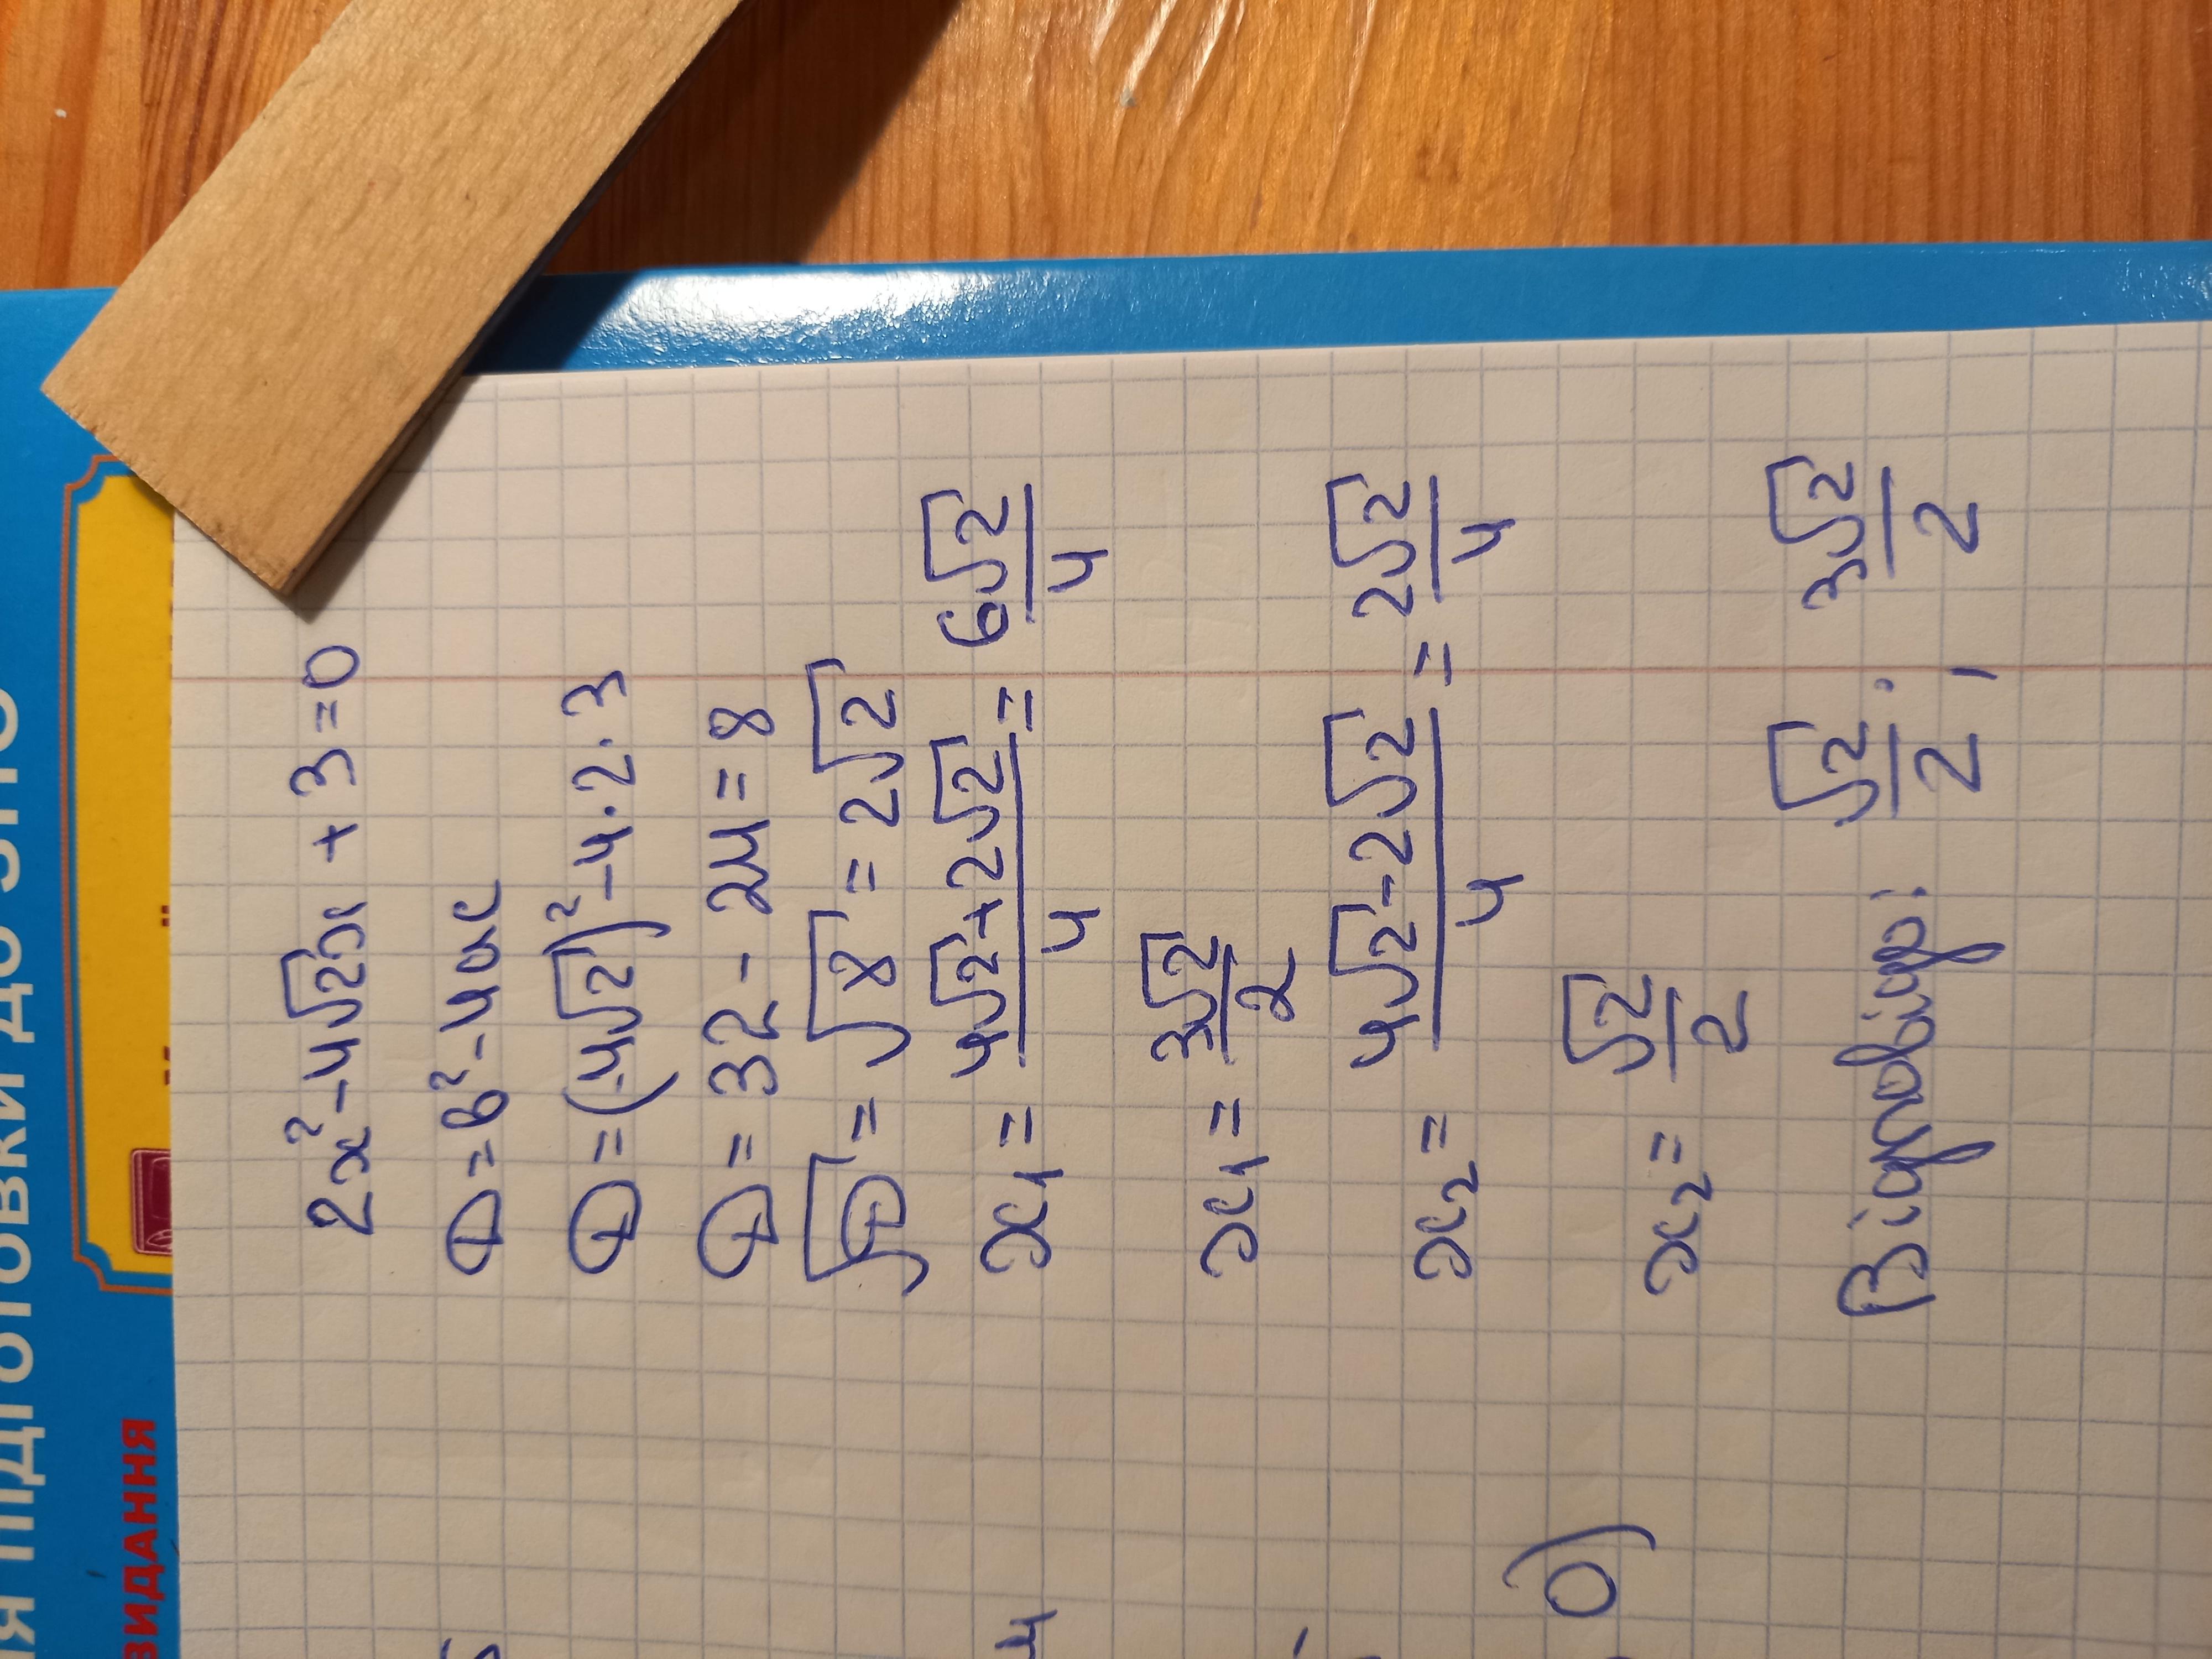 ЗНО
ВИДАННЯ
2x² - 4√2x + 3 = 0
D = b² - 4ac
D = (-4√2)² - 4 · 2 · 3
D = 32 - 24 = 8
√D = √8 = 2√2
x₁ = (4√2 + 2√2)/4 = 6√2/4
x₁ = 3√2/2
x₂ = (4√2 - 2√2)/4 = 2√2/4
x₂ = √2/2
Відповідь: √2/2 ; 3√2/2